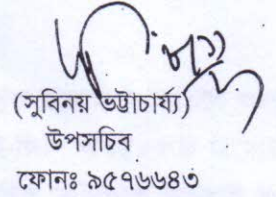 (সুবিনয় ভট্টাচার্য্য)
উপসচিব
ফোনঃ ৯৫৭৬৬৪৩